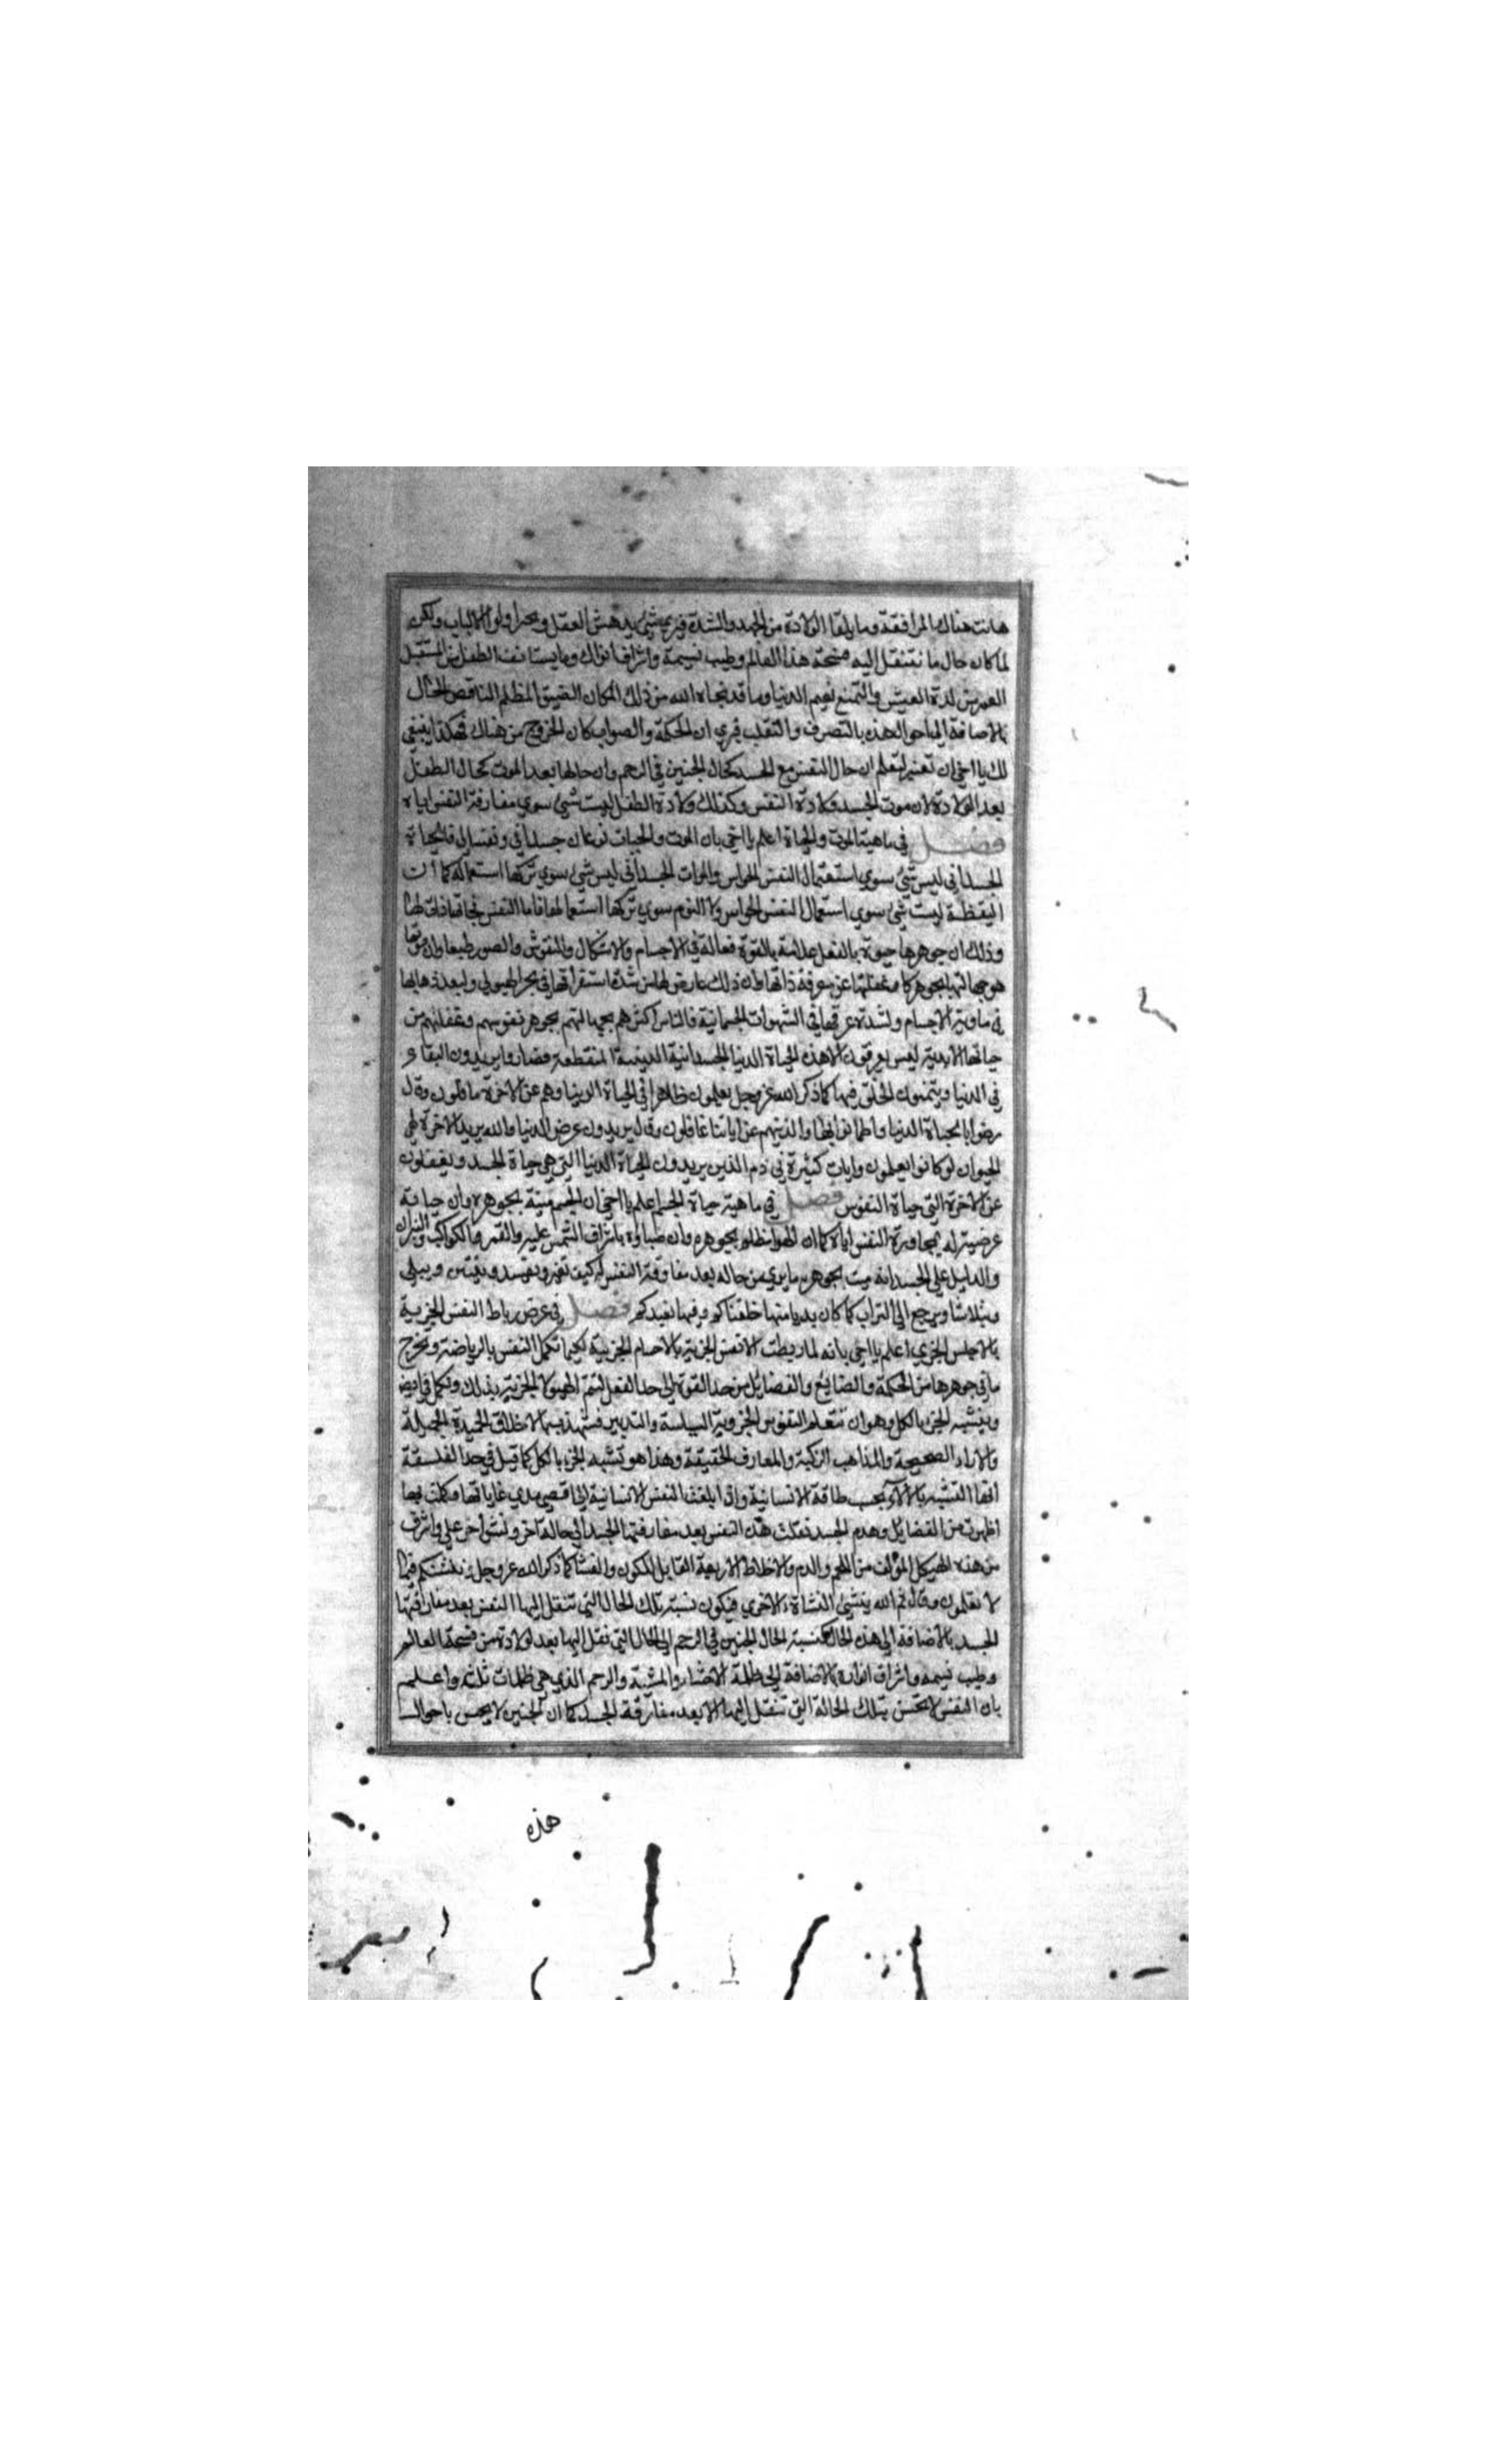 هانت هناك المرافقة وما يلقا الولادة من الجهد والشدة فيري شيئ يدهش العقل ويحير اولوا الالباب ولكن
لما كان حال ما تنتقل اليه فسحة هذا العالم وطيب نسيمه واشراف انواره وما يستانف الطفل من المستقبل
العمر من لذة العيش والتمتع بنعيم الدنيا وما قد نجاه الله من ذلك المكان الضيق المظلم الناقص الحال
بالاضافة الي احوال هذه بالتصرف والتقلب فيري ان الحكمة والصواب كان الخروج من هناك فهكذا ينبغي
لك يا اخي ان تعتبر لتعلم ان حال النفس مع الجسد كحال الجنين في الرحم وان حالها بعد الموت كحال الطفل
بعد الولادة لان موت الجسد ولادة النفس وكذلك ولادة الطفل ليست شيئ سوي مفارقة النفس اياه
فصل في ماهية الموت والحياة اعلم يا اخي بان الموت والحيات نوعان جسداني ونفساني فالحياة
الجسداني ليس شيئ سوي استعمال النفس الحواس والموات الجسداني ليس شيئ سوي تركها استعماله كما ان
اليقظة ليست شيئ سوي استعمال النفس الحواس ولا النوم سوي تركها استعمالها فاما النفس فحياتها ذاتي لها
وذلك ان جوهرها حيوة بالفعل علامة بالقوة فعالة في الاجسام والاشكال والنقوش والصور طبعا وان موتها
هو جهالتها بجوهرها وغفلتها عن معرفة ذاتها وان ذلك عارض لها من شدة استغراقها في بحر الهيولي ولبعد ذهابها
في هاوية الاجسام ولشدة غرقها في الشهوات الجسمانية فالناس اكثرهم بجهالتهم بجوهر نفوسهم وغفلتهم من
حياتها الابدية ليس يعرفون الا هذه الحياة الدنيا الجسدانية الدنيية المنقطعة فضاروا يريدون البقاء
في الدنيا ويتمنون الخلق فيها كما ذكر الله عز وجل يعلمون ظاهرا في الحياة الدنيا وهم عن الاخرة غافلون وقال
رضوا بالحياة الدنيا واطمانوا بها والذين هم عن اياتنا غافلون وقال يريدون عرض الدنيا والله يريد الاخرة لهي
الحيوان لو كانوا يعلمون وايات كثيرة في ذم الذين يريدون الحياة الدنيا التي هي حياة الجسد ويغفلون
عن الاخرة التي حياة النفوس فصل في ماهية حياة الجسم اعلم يا اخي ان الجسم ميتة بجوهره وان حياته
عرضية له بمجاورة النفس اياه كما ان الهوا مظلم بجوهره وان ضياؤه باشراف الشمس عليه والقمر والكواكب النيرات
والدليل علي الجسد انه ميت بجوهره ما يري من حاله بعد مفارقة النفس له كيف تغير وتفسد وينتن ويبلي
ويتلاشا ويرجع الي التراب كما كان بديا منها خلقناكم وفيها نعيدكم فصل في عرض رباط النفس الجزيية
بالاجلس الجزي اعلم يا اخي بانه لما ربطت الانفس الجزيية بالاجسام الجزيية لكيما تكمل النفس بالرياضة وتخرج
ما في جوهرها من الحكمة والصنايع والفضايل من حد القوة الي حد الفعل لتتم الهيولا الجزيية بذلك وتكمل فيض
ويتشبه الجزء بالكل وهو ان تتعلم النفوس الجزوية السياسة والتدبير فتتهذب بها الاخلاق الحميدة الجميلة
والاراء الصحيحة والمذاهب الزكية والمعارف الحقيقة وهذا هو تشبه الجزء بالكل كما قيل في حد الفلسفة
انها التشبه بالاله بحسب طاقة الانسانية واذا بلغت النفس الانسانية الي اقصي مدي غاياتها وكملت بها
اظهرت من الفضايل وهدم الجسد نقلت هذه النفس بعد مفارقتها الجسد الي حالة اخر ونشو اخر علي واشرف
من هذه الهيكل المؤلف من اللحم والدم والاخلاط الاربعة القابل للكون والفساد كما ذكر الله عز وجل وننشئكم فيما
لا تعلمون وقال ثم الله ينشئ النشاة الاخري فيكون نسبة تلك الحال التي تنتقل اليها النفس بعد مفارقتها
الجسد بالاضافة الي هذه الحال كنسبة الحال الجنين في الرحم الي الحال التي نقل اليها بعد لولادة من فسحة العالم
وطيب نسيمه واشراق انواره بالاضافة الي ظلمة الاحشاء والمشيمة والرحم الذي هي ظلمات ثلثة واعلم
بان النفس لا تحسن بتلك الحالة التي تنتقل اليها الا بعد مفارقة الجسد كما ان الجنين لا يحس باحوال
هذه